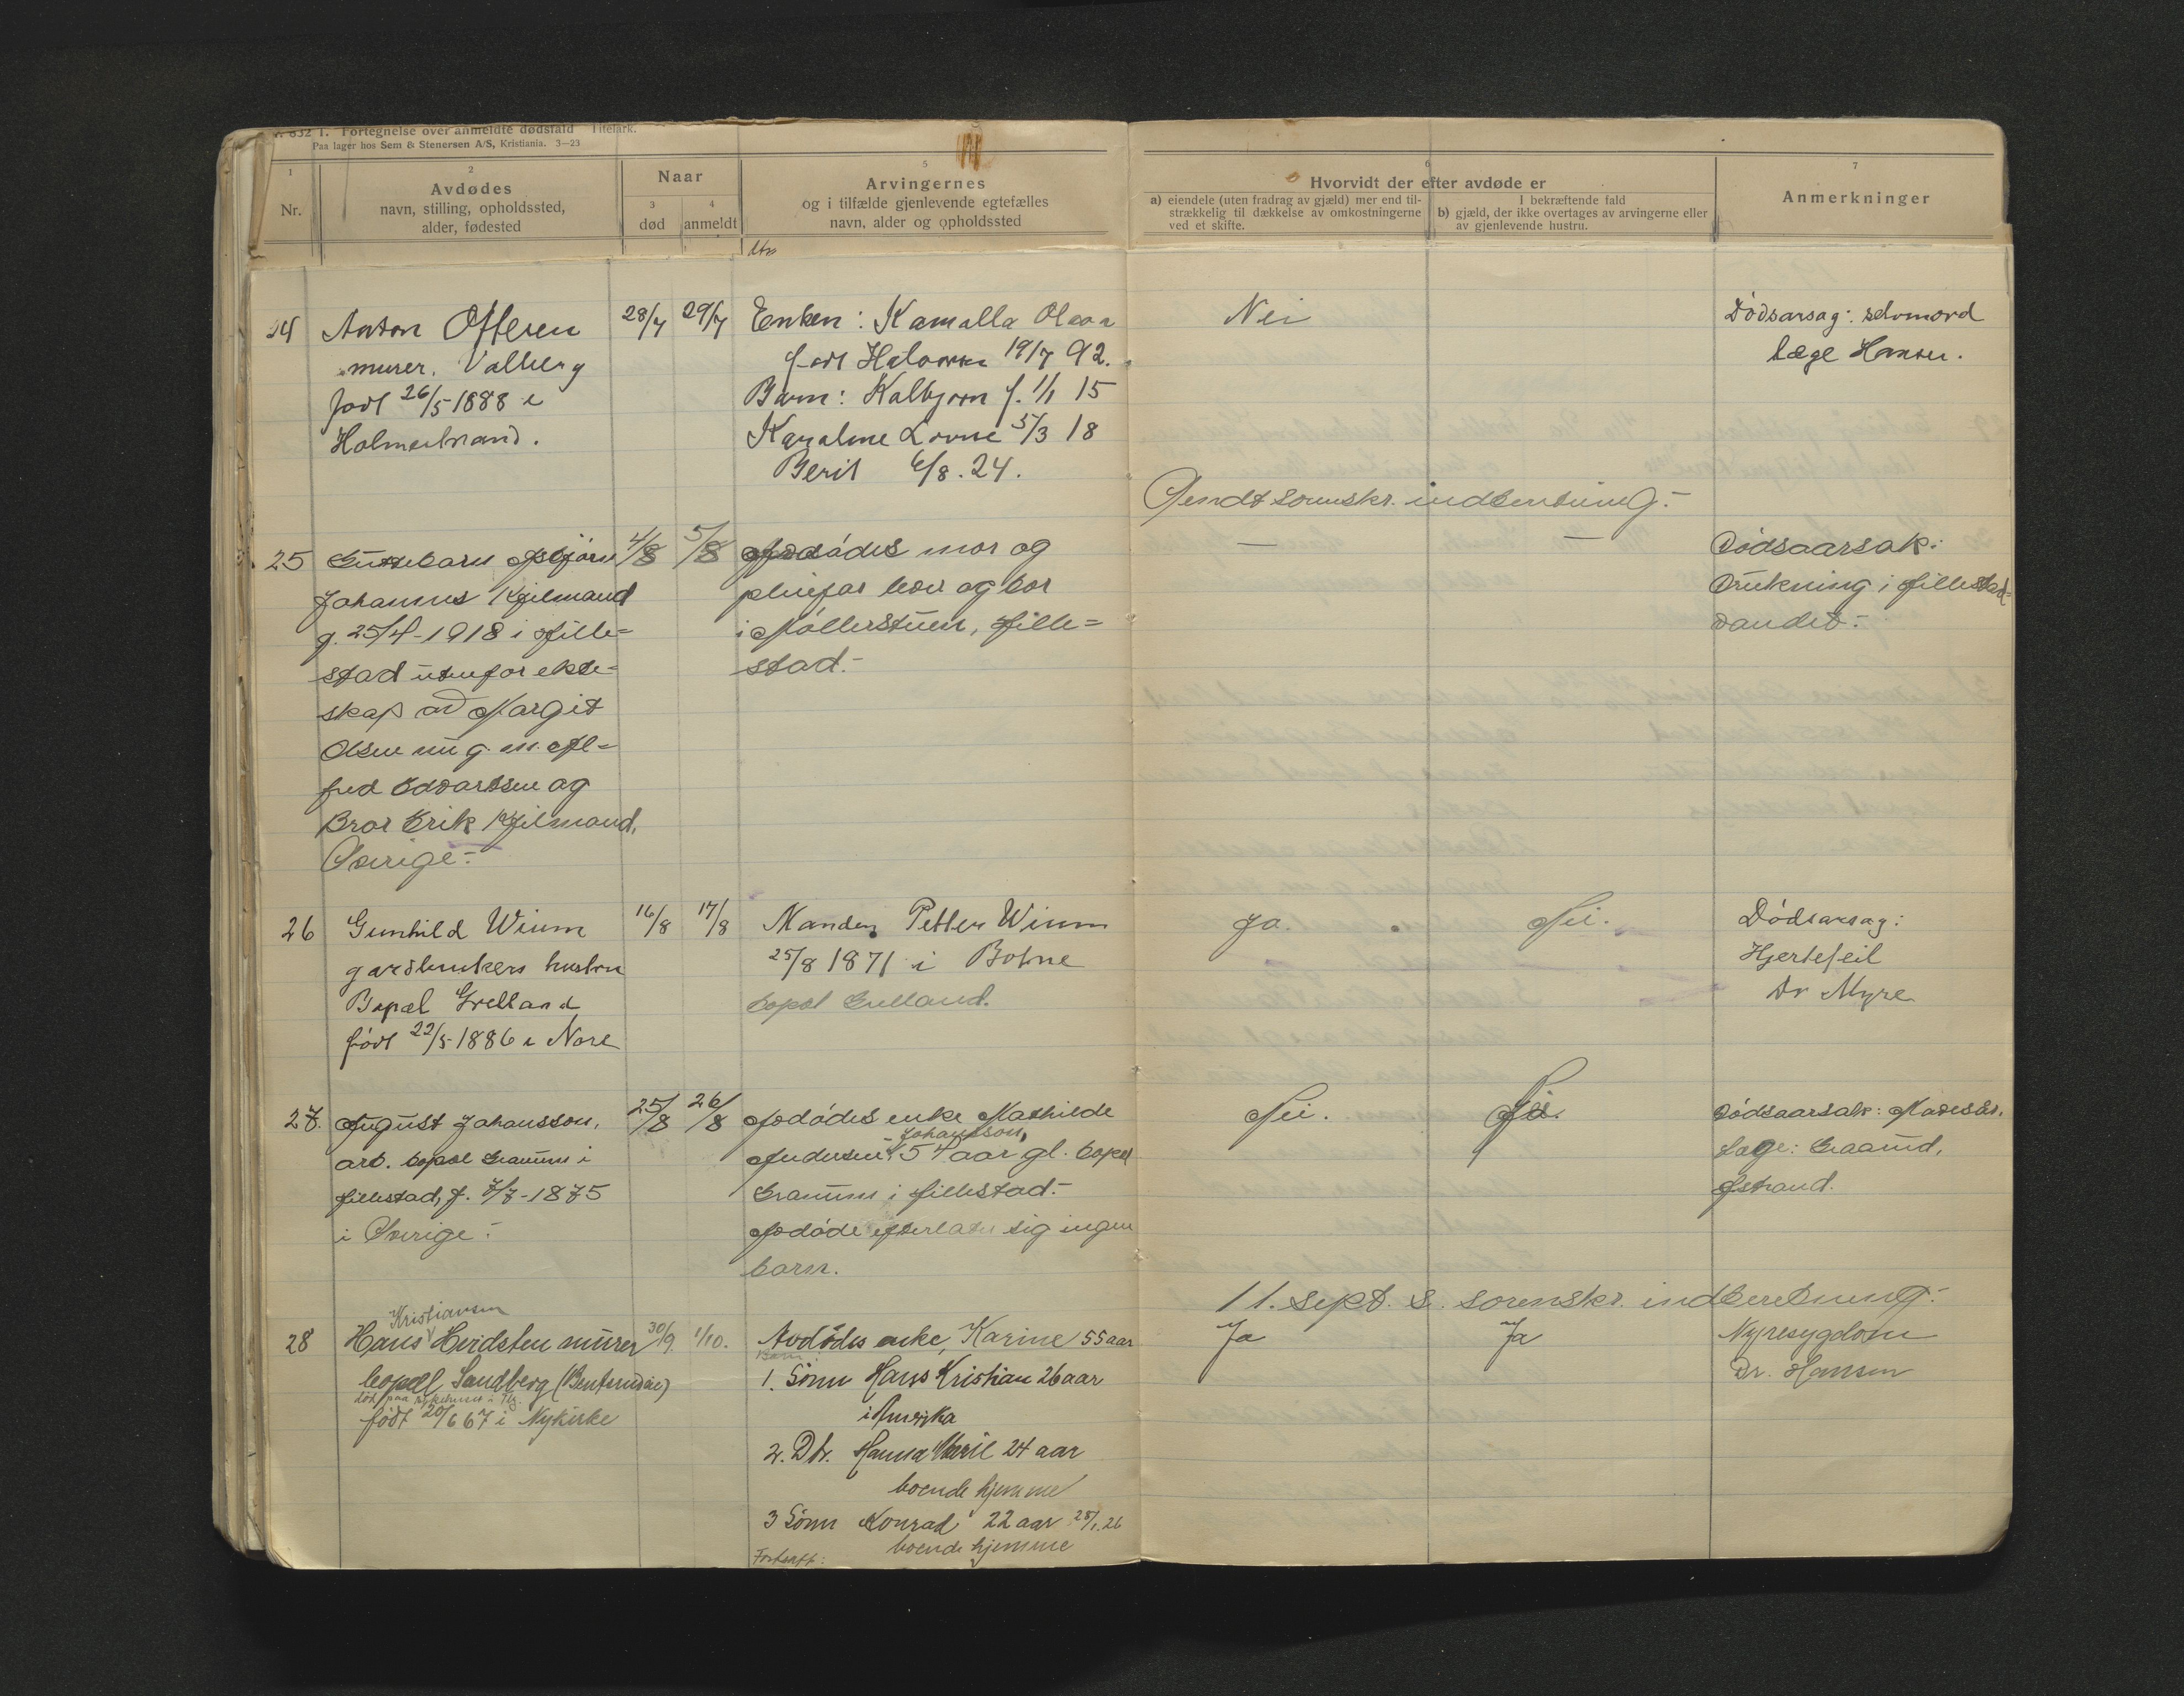 632 1. Fortegnelse over anmeldte dødsfald Titelark.
Paa lager hos Sem & Stenersen A/S, Kristiania. 3—23
1
Nr.
2
Avdødes
navn, stilling, opholdssted,
alder, fødested
Naar
3
død
4
anmeldt
5
Arvingernes
og i tilfælde gjenlevende egtefælles
navn, alder og opholdssted
6
Hvorvidt der efter avdøde er
a) eiendele (uten fradrag av gjæld) mer end til-
strækkelig til dækkelse av omkostningerne
ved et skifte.
I bekræftende fald
b) gjæld, der ikke overtages av arvingerne eller
av gjenlevende hustru.
7
Anmerkninger
24 Anton Offesen
murer. Valberg
født 26/5 1888 i
Holmestrand.
28/7 29/7
Enken: Kamalla
født 19/7 92.
Barn: Kolbjørn f. 1/1 15
5/3 18
Berit 6/8. 24.
Nei
Dødsarsag: selvmord
læge Hansen.
Sendt sorenskr. indberetning.-
25 Guttebarn Asbjørn
Johannes Kjilmand
f. 25/4-1918 i Fille=
stad utenfor ekte=
skap av Margit
Olsen nu g. m. Al=
fred Edvardsen og
Bror Erik Kjilmand,
Sverige.-
4/8 5/8
Avdødes mor og
pleiefar bor og bor
i Møllerstuen, Fille=
stad.-
— —
Dødsaarsak:
Drukning i Fillestad=
vandet.-
26 Gunhild Wium
gardbrukers hustru
Bopæl Grelland
født 22/5 1886 i Nore
16/8 17/8
Manden Petter Wium
25/8 1871 i Botne
bopæl Grelland.
Ja. Nei.
Dødsarsag:
Hjertefeil
Dr Myre
27. August Johansson,
arb. bopæl Graum i
Fillestad, f. 7/7-1875
i Sverige.-
25/8 26/8
Avdødes enke Mathilde
Johansson,
Andersen 54 aar gl. bopæl
Graum i Fillestad.-
Avdøde efterlater sig ingen
barn.
Nei. Ja.
Dødsaarsak: Mavesår.
Læge: Graarud,
Åstrand.
11. sept. s. sorenskr. indberetning.-
28 Kristiansen
Hans Hvidsten murer
bopæl Sandberg
død paa sykehuset i Tbg.
født 20/6 67 i Nykirke
30/9. 1/10.
Avdødes enke, Karine 55 aar
Barn
1. Sønn Hans Kristian 26 aar
i Amerika
2. Dtr. Hanna Marie 24 aar
boende hjemme
3 Sønn Konrad 22 aar 28/1.26
boende hjemme
Fortsatt:
Ja Ja
Nyresygdom
Dr. Hansen